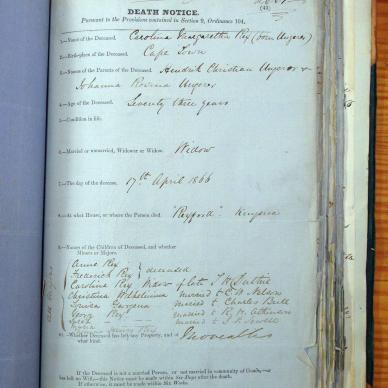 DEATH NOTICE.
Pursuant to the Provisions contained in Section 9, Ordinance 104.
1.—Name of the Deceased, Carolina Margaretha Rex (born Ungerer)
2.—Birth-place of the Deceased, Cape Town
3.—Names of the Parents of the Deceased, Hendrik Christian Ungerer &
Johanna Rosina Ungerer
4.—Age of the Deceased, Seventy three years
5.—Condition in life,
6.—Married or unmarried, Widower or Widow, Widow
7.—The day of the decease, 17th April 1866
8.—At what House, or where the Person died, Knysna
9.—Names of the Children of Deceased, and whether
Minors or Majors.
Anne Rex
Frederick Rex } deceased
Caroline Rex Widow of late T H Duthie
Christina Wilhelmina married to
Louisa Georgina married to Charles Bull
George Rex
Maria married to
10.—Whether Deceased has left any Property, and of
what kind. Moveables
If the Deceased is not a Married Person, or not married in community of Goods,—or
has left no Will,—this Notice must be made within Six Days after the death.
If otherwise, it must be made within Six Weeks.